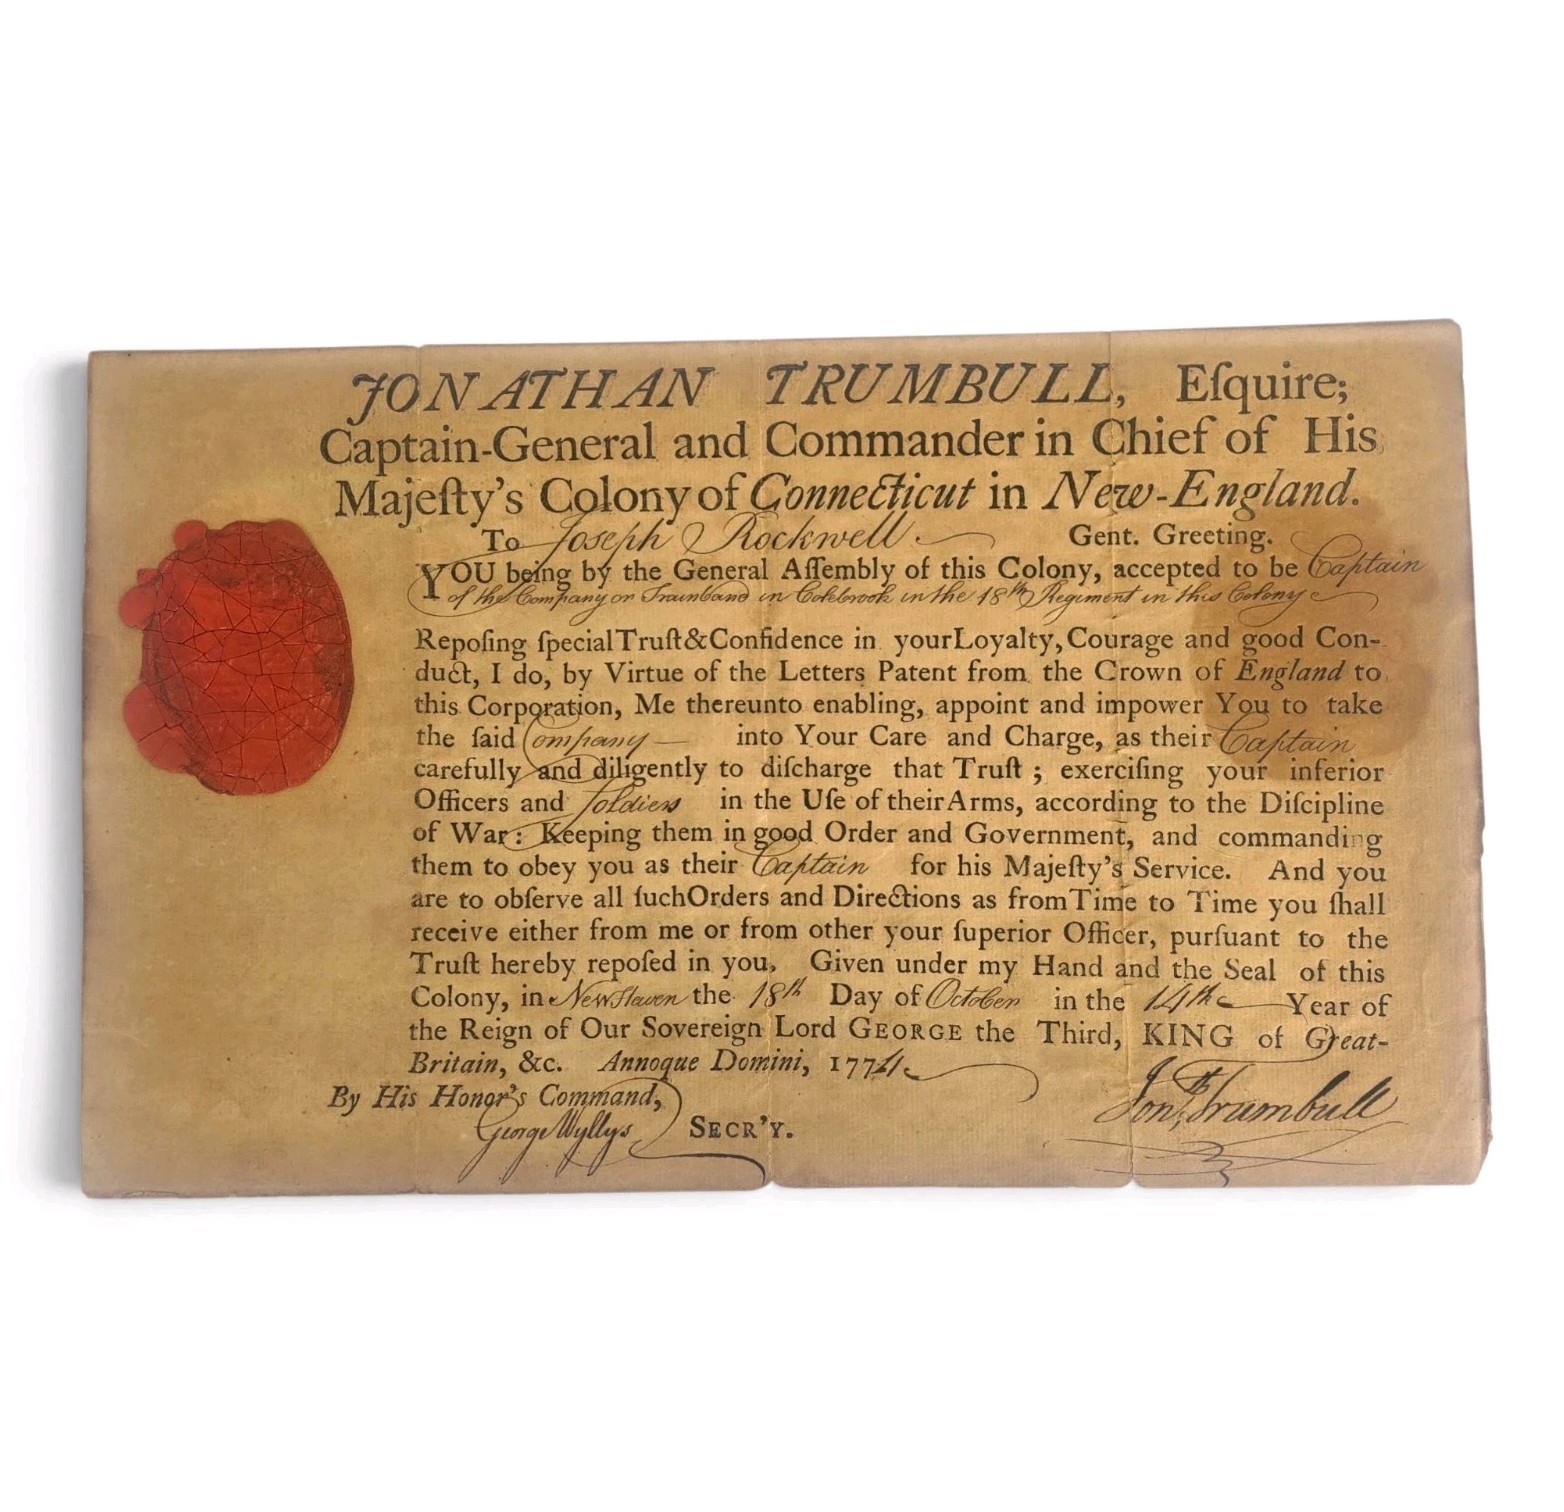 JONATHAN TRUMBULL, Eſquire;
Captain-General and Commander in Chief of His
Majeſty's Colony of Connecticut in New-England.
To Joseph Rockwell. Gent. Greeting.
YOU being by the General Aſſembly of this Colony, accepted to be Captain
of the Company or Trainband in Colebrook in the 18th Regiment in this Colony
Repoſing ſpecial Truſt & Confidence in your Loyalty, Courage and good Con-
duct, I do, by Virtue of the Letters Patent from the Crown of England to
this Corporation, Me thereunto enabling, appoint and impower You to take
the ſaid Company into Your Care and Charge, as their Captain
carefully and diligently to diſcharge that Truſt; exerciſing your inferior
Officers and Soldiers in the Uſe of their Arms, according to the Diſcipline
of War: Keeping them in good Order and Government, and commanding
them to obey you as their Captain for his Majeſty's Service. And you
are to obſerve all ſuch Orders and Directions as from Time to Time you ſhall
receive either from me or from other your ſuperior Officer, purſuant to the
Truſt hereby repoſed in you. Given under my Hand and the Seal of this
Colony, in New Haven the 18th Day of October in the 14th Year of
the Reign of Our Sovereign Lord GEORGE the Third, KING of Great-
Britain, &c. Annoque Domini, 1774.
By His Honor's Command,
George Wyllys SECR'Y.
Jonth Trumbull